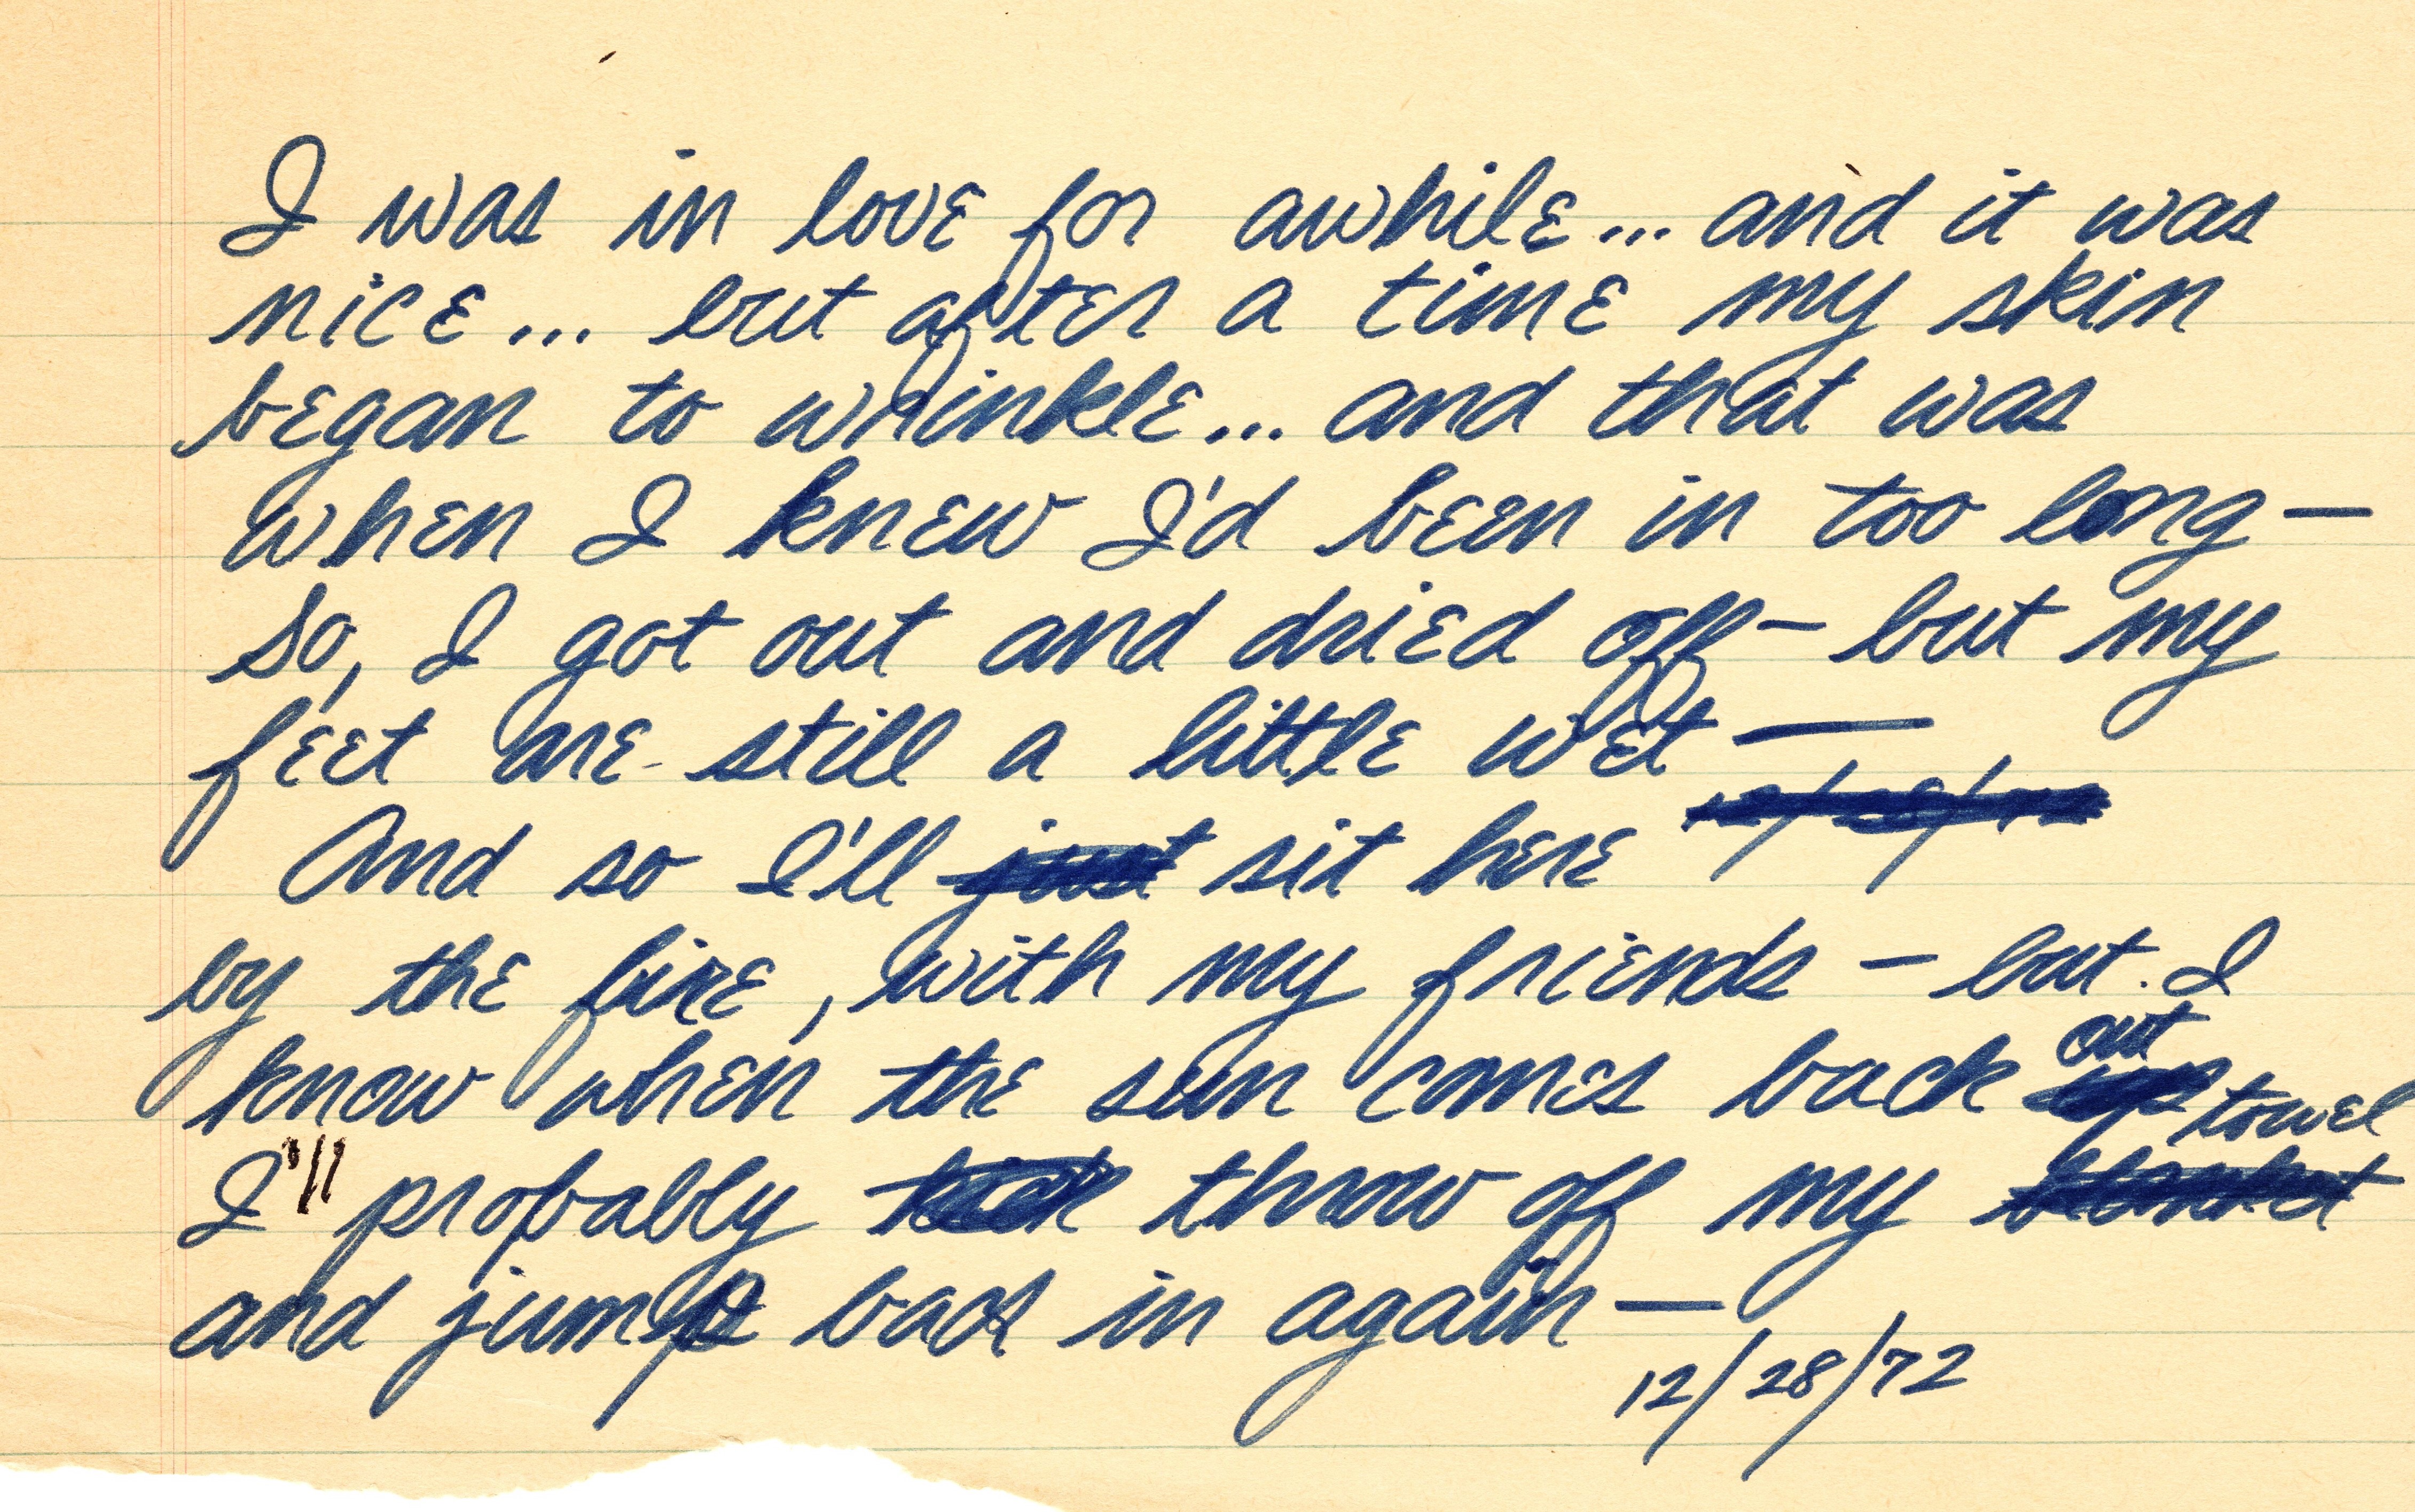 I was in love for awhile... and it was
nice... but after a time my skin
began to wrinkle... and that was
when I knew I'd been in too long—
So, I got out and dried off – but my
feet are still a little wet —
12/28/72
And so I'll just sit here
by the fire, with my friends – but I
know when the sun comes back up out
I'll probably kick throw off my blanket towel
and jump back in again —
12/28/72